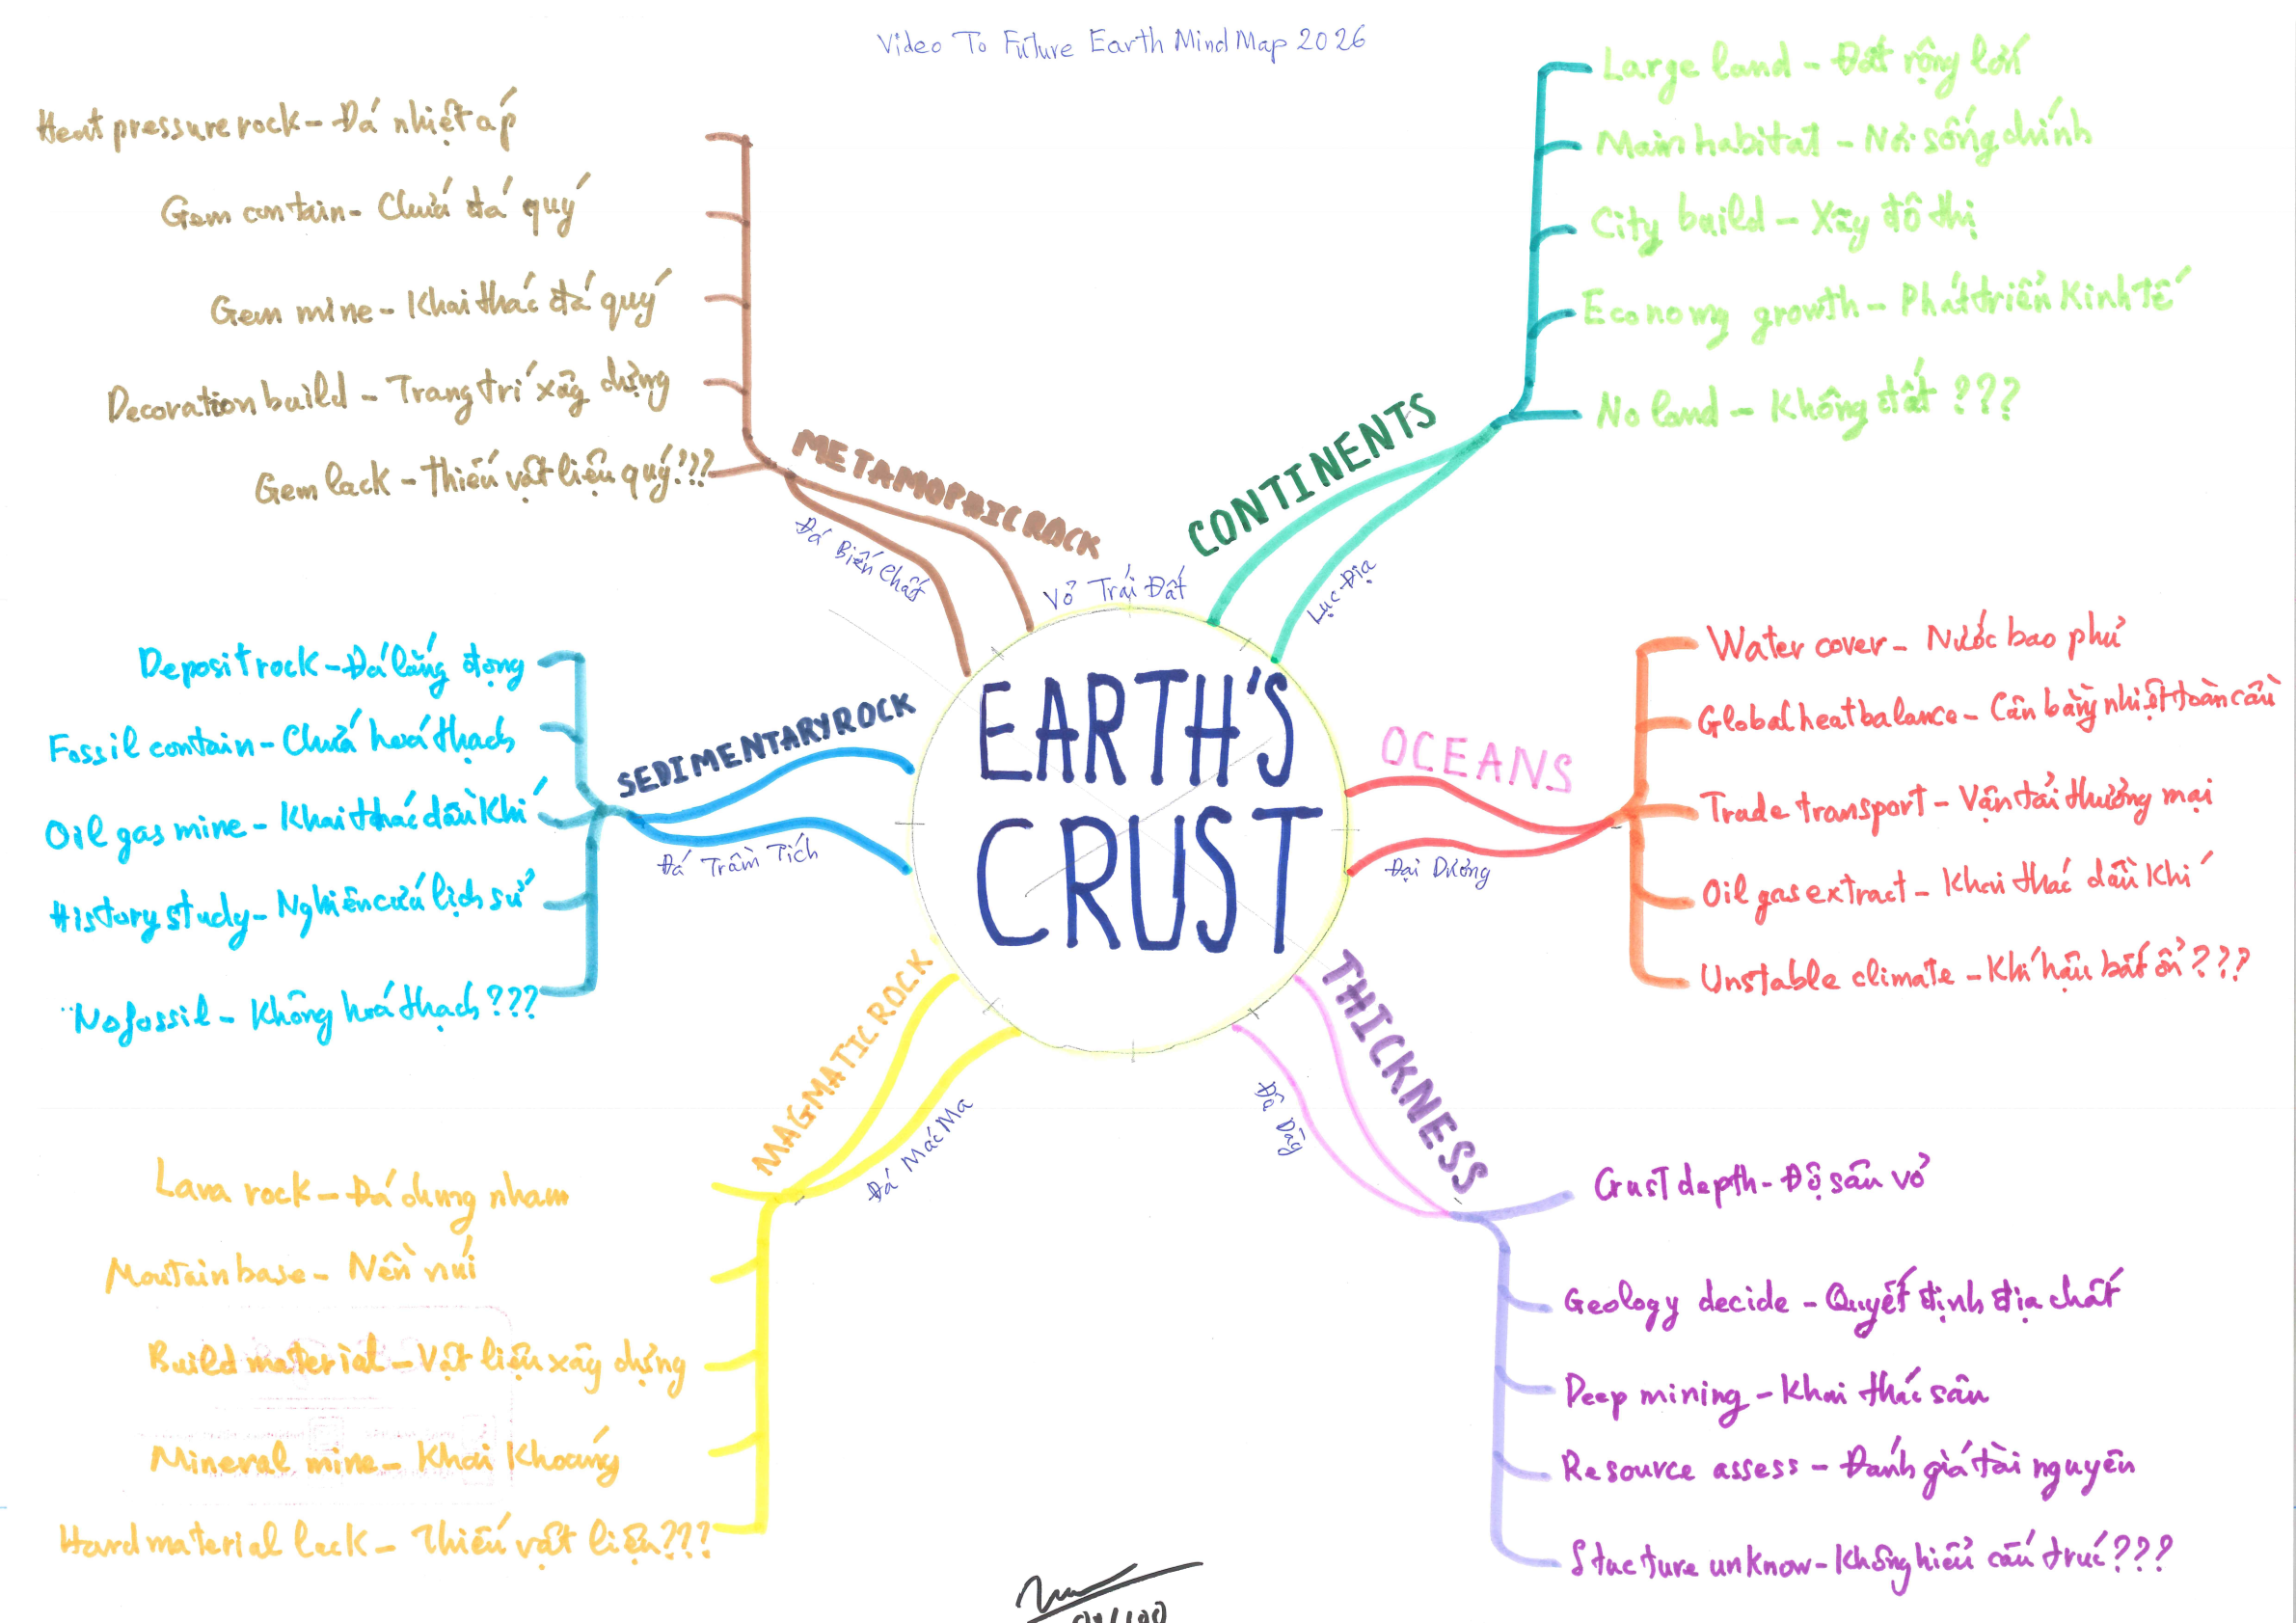 Video To Future Earth Mind Map 2026
EARTH'S
CRUST
Vỏ Trái Đất
CONTINENTS
Lục Địa
Large land - Đất rộng lớn
Main habitat - Nơi sống chính
City build - Xây đô thị
Economy growth - Phát triển Kinh tế
No land - Không đất ???
OCEANS
Đại Dương
Water cover - Nước bao phủ
Global heat balance - Cân bằng nhiệt toàn cầu
Trade transport - Vận tải thương mại
Oil gas extract - Khai thác dầu khí
Unstable climate - Khí hậu bất ổn ???
THICKNESS
Độ Dày
Crust depth - Độ sâu vỏ
Geology decide - Quyết định địa chất
Deep mining - Khai thác sâu
Resource assess - Đánh giá tài nguyên
Stucture unknow - Không hiểu cấu trúc ???
MAGMATIC ROCK
Đá Mác Ma
Lava rock - Đá dung nham
Moutain base - Nền núi
Build material - Vật liệu xây dựng
Mineral mine - Khai Khoáng
Hard material lack - Thiếu vật liệu???
SEDIMENTARY ROCK
Đá Trầm Tích
Deposit rock - Đá lắng đọng
Fossil contain - Chứa hoá thạch
Oil gas mine - Khai thác dầu khí
History study - Nghiên cứu lịch sử
No fossil - Không hoá thạch ???
METAMOPHIC ROCK
Đá Biến Chất
Heat pressure rock - Đá nhiệt áp
Gem contain - Chứa đá quý
Gem mine - Khai thác đá quý
Decoration build - Trang trí xây dựng
Gem lack - Thiếu vật liệu quý???